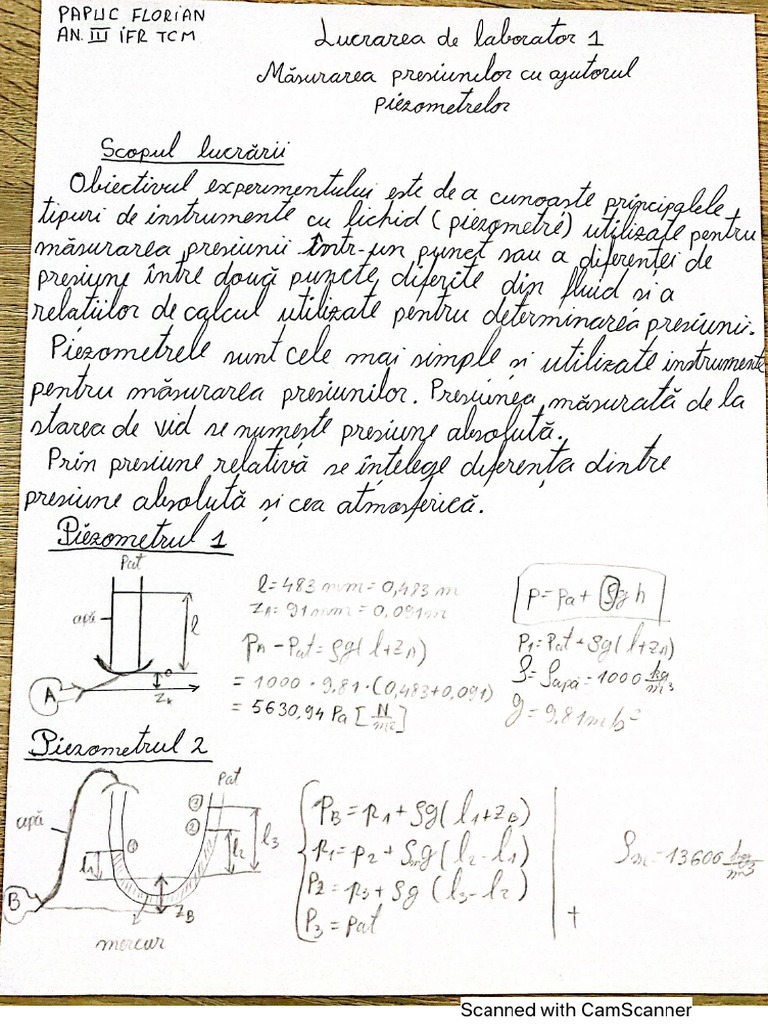 PAPUC FLORIAN
AN. III IFR TCM
Lucrarea de laborator 1
Măsurarea presiunilor cu ajutorul
piezometrelor
Scopul lucrării
Obiectivul experimentului este de a cunoaște principalele
tipuri de instrumente cu lichid (piezometre) utilizate pentru
măsurarea presiunii într-un punct sau a diferenței de
presiune între două puncte diferite din fluid si a
relatiilor de calcul utilizate pentru determinarea presiunii.
Piezometrele sunt cele mai simple si utilizate instrumente
pentru măsurarea presiunilor. Presiunea măsurată de la
starea de vid se numește presiune absolută.
Prin presiune relativă se înțelege diferența dintre
presiune absolută și cea atmosferică.
Piezometrul 1
Pat
apă
l
0
A
ZA
l = 483 mm = 0,483 m
ZA = 91 mm = 0,091 m
pA - Pat = ρg(l+ZA)
= 1000 · 9.81 · (0,483+0,091)
= 5630,94 Pa [N/m2]
p = pa + ρgh
P1 = Pat + ρg(l+ZA)
ρ = ρapă = 1000 kg/m3
g = 9,81 m/s2
Piezometrul 2
Pat
apă
③
②
①
l1
l2
l3
B
ZB
mercur
PB = p1 + ρg(l1+ZB)
p1 = p2 + ρmg(l2-l1)
P2 = p3 + ρg(l3-l2)
P3 = pat
+
ρm = 13600 kg/m3
Scanned with CamScanner